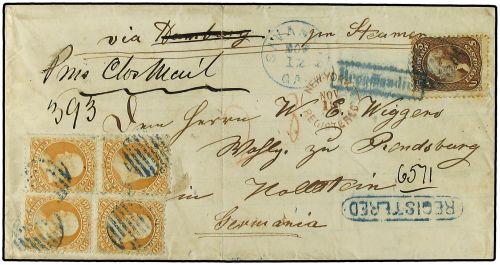 via Hamburg per Steamer
Prus Clos Mail
393
SAVANNAH
NOV
12
GA.
NEW-YORK
NOV
REGISTERED
Dem Herrn W. E. Wiggers
Wohlg. zu Rendsburg
6571
in Hollstein
REGISTERED
Germania